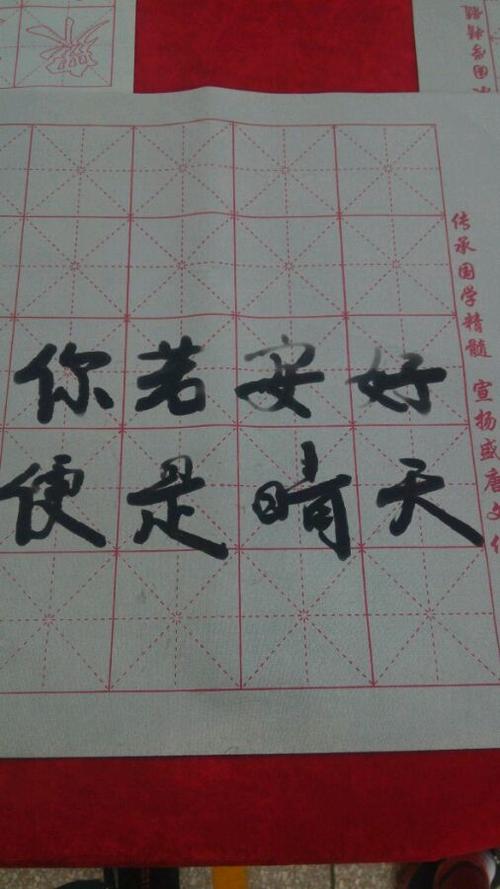 你若安好
便是晴天
传承国学精髓 宣扬盛唐文化